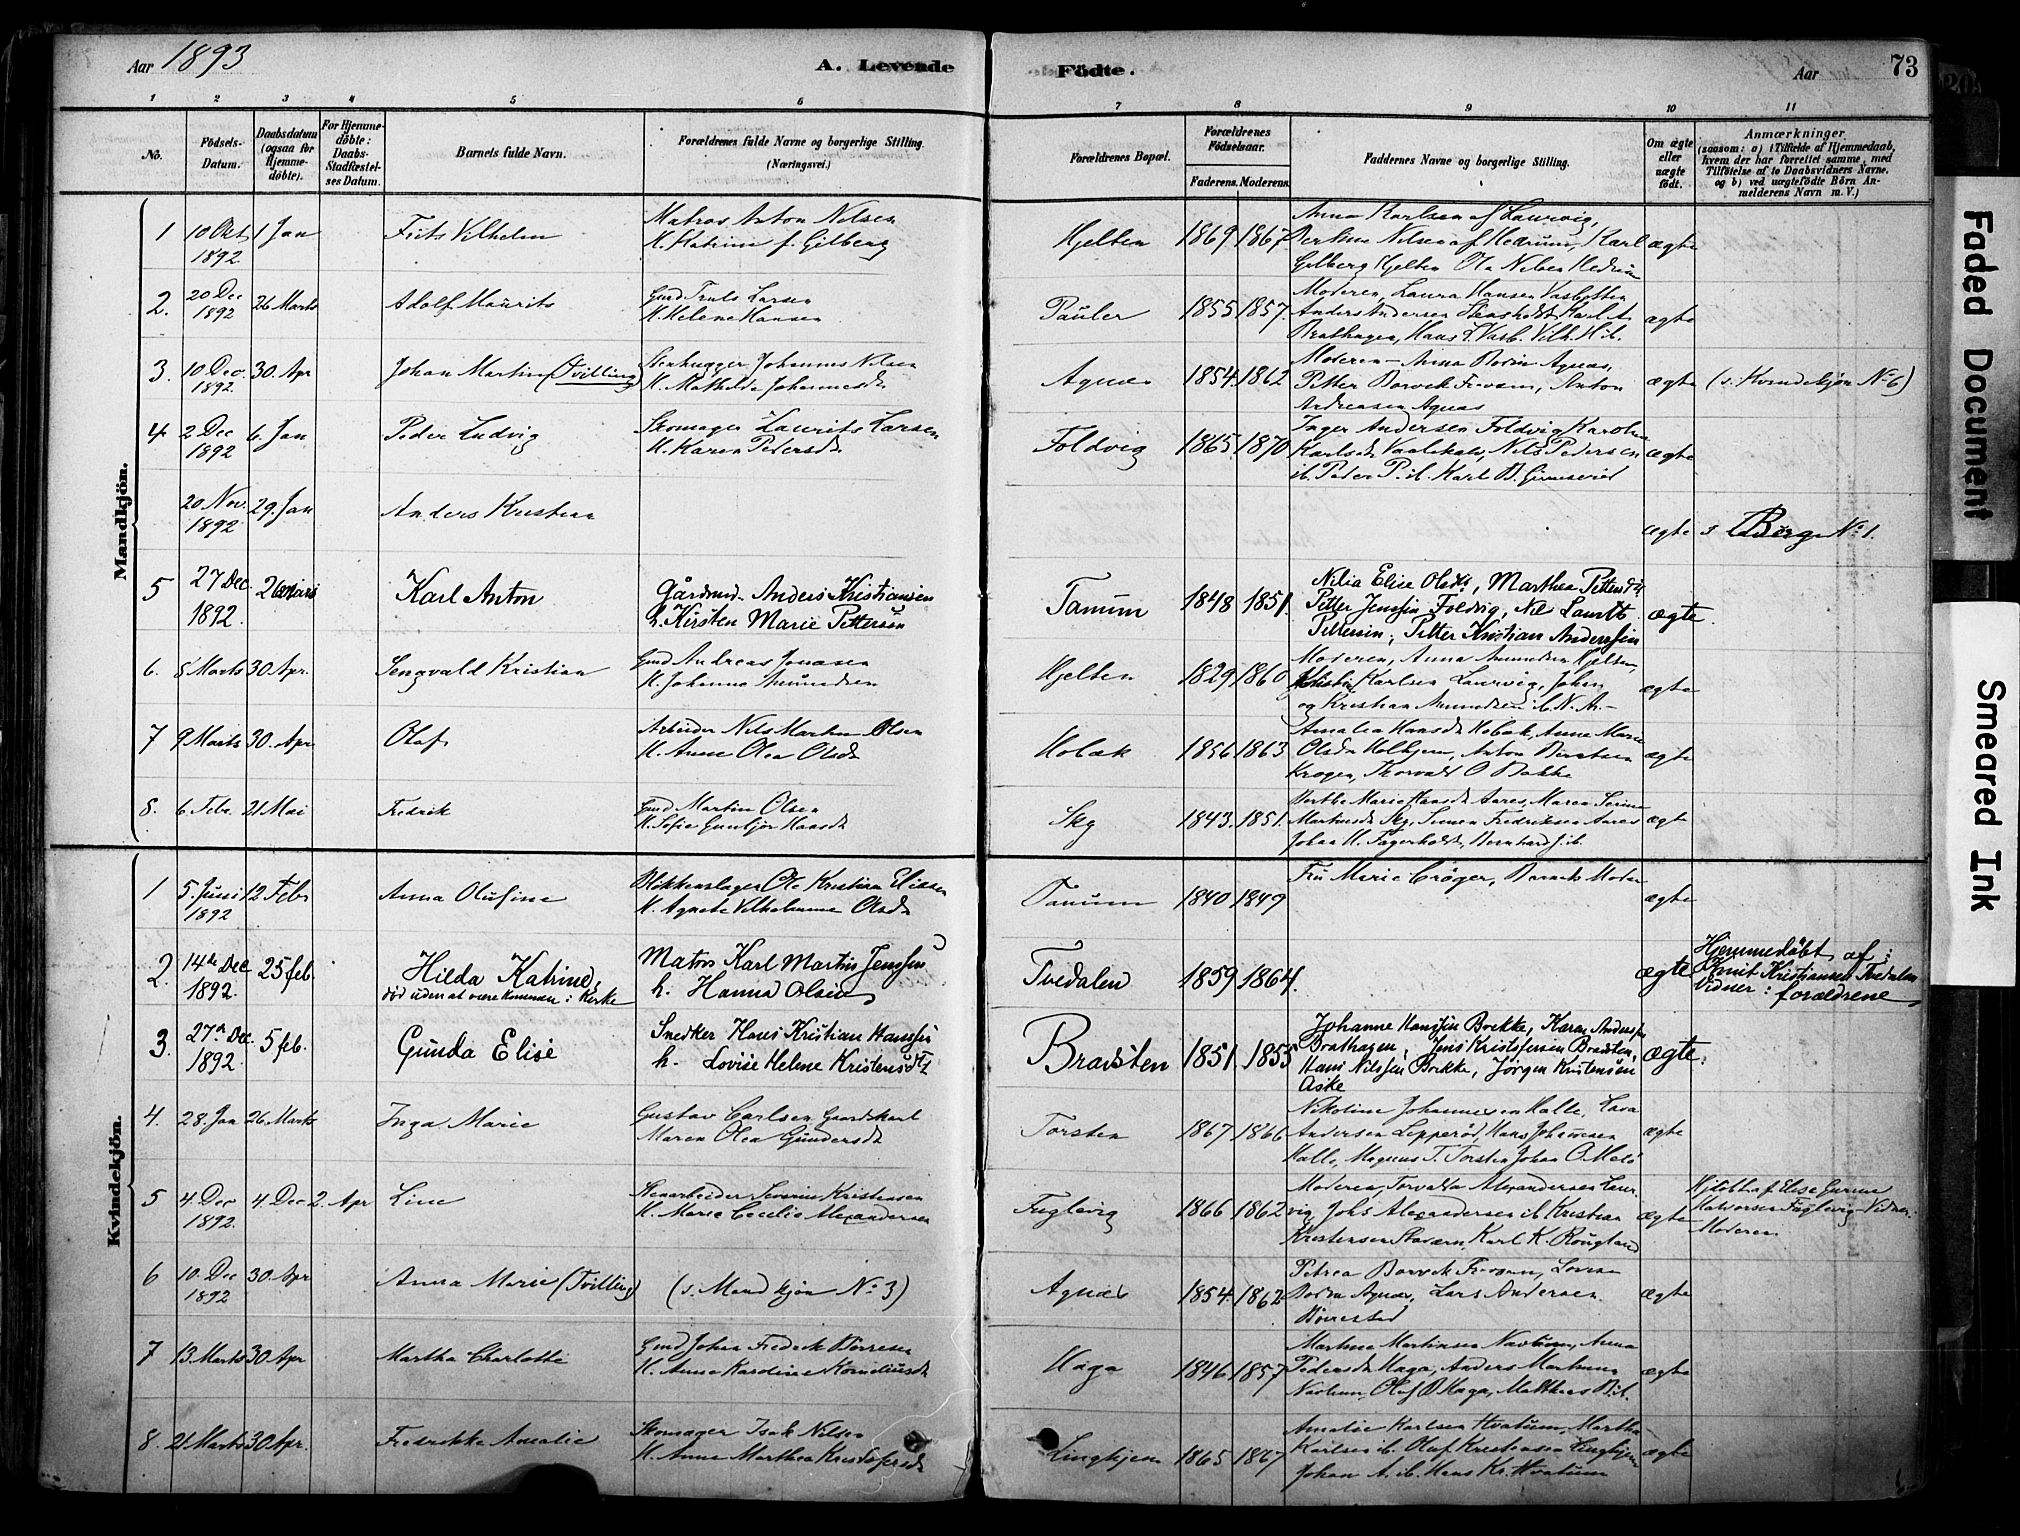 Aar 1893
A. Levende
Födte.
Aar
73
1 2 3 4 5 6 7 8 9 10 11
No.
Födsels-
Datum.
Daabsdatum
(ogsaa for
Hjemme-
döbte).
For Hjemme-
döbte:
Daabs-
Stadfæstel-
ses Datum.
Barnets fulde Navn.
Forældrenes fulde Navne og borgerlige Stilling.
(Næringsvei.)
Forældrenes Bopæl.
Forældrenes
Födselsaar.
Faderens. Moderens.
Faddernes Navne og borgerlige Stilling.
Om ægte
eller
uægte
födt.
Anmærkninger
(saasom: a) i Tilfælde af Hjemmedaab,
hvem der har forrettet samme, med
Tilföielse af to Daabsvidners Navne.
og b) ved uægtefödte Börn An-
melderens Navn m. V.)
Mandkjön.
1 10 Okt 1892 1 Jan Frits Vilhelm
Matros Anton Nilsen
H. Katrine f. Gilberg
Hjelten 1869 1867
Anna Karlsen af Laurvig,
Nilsen af Hedrum, Karl
Gilberg Hjelten Ole Nilsen Hedrum
ægte
2. 20 Dec 1892 26 Marts Adolf Maurits
Gmd Truls Larsen
H. Helene Hansen
Pauler 1855 1857.
Moderen, Laura Hansen Vasbotten
Anders Andersen Karl A.
Brathagen, Hans L. Vasb. Vilh. H ib.
ægte
3. 10 Dec. 1892 30. Apr Johan Martin (Tvilling)
Stenhugger Johannes Nilsen
H. Mathilde Johannesdt
Agnæs 1854. 1862
Moderen – Anna Agnæs,
Petter Anton
Andreasen Agnæs
ægte (s. Kvindekjön No 6)
4 2 Dec 1892 6. Jan Peder Ludvig
Skomager Laurits Larsen
H. Karen Pedersdt
Foldvig 1865. 1870
Inger Andersen Foldvig Karoline
Karlsdt Nils Pedersen
ib. Peder P. ib. Karl B.
ægte
20 Nov. 1892 29. Jan Anders Kristian
ægte s Berg No 1.
5 27 Dec. 1892. 26 Marts Karl Anton
Gårdmd. Anders Kristiansen
h. Kirsten Marie Pettersen
Tanum 1848 1851.
Nilia Elise Olsdt, Marthea Pettersdt
Petter Jenssen Foldvig, Nil Laurits
Pettersen, Petter Kristian Anderssen
ægte.
6. 8 Marts 30 Apr. Sengvald Kristian
Gmd Andreas Jonasen
H. Johanne Amundsen
Hjelten 1829 1860
Moderen, Anna Amundsen Hjelten,
Karlsen Laurvig, Johan
og Kristian Amundsen ib. N. A. –
ægte
7 9 Marts 30. Apr Olaf
Arbeider Nils Martin Olsen
H. Anne Olea Olsdt
Hobæk 1856. 1863
Amalia Hansdt Hobæk, Anne Marie
Olsdt Anton
Krogen, Thorvald O Bakke
ægte
8. 6 Febr. 21 Mai Fredrik
Gmd Martin Olsen
H. Sofie Gunbjør Hansdt
Skg 1843. 1851.
Berthe Marie Hansdt Aares, Maren Serine
Martinsdt Skg, Simen Fredriksen Aares
Johan H. Fagerholdt, Bernhard J. ib.
ægt
Kvindekjön.
1 5. Juni 1892 12 Febr Anna Olufine
Blikkenslager Ole Kristian Eliasen
H. Agnete Vilhelmine Olsdt
Tanum 1840 1849
Fru Marie Crøger, Barnets Moder
ægte
2. 14de Dec 1892. 25 feb. Hilda Katrine,
død uden at være kommen i Kirke
Matros Karl Martin Jenssen
h. Hanna Olsen
Tvedalen 1859 1864.
ægte
Hjemmedøbt af:
Kristiansen Tvedalen
Vidner: forældrene
3. 27de Dec. 1892. 5 feb. Gunda Elise
Snedker Hans Kristian Hanssen
h. Lovise Helene Kristensdt
Bradsten 1851. 1855
Johanne Hanssen Brekke, Karen Anderssen
Brathagen, Jens Kristofersen Bradsten,
Hans Nilssen Brekke, Jörgen Kristensen
Aske
ægte.
4. 28. Jan 26. Marts Inga Marie
Gustav Carlsen Gaardskarl
Maren Olea Gundersdt
Torsten 1867 1866
Nikoline Johannesen Halle, Lava
Andersen Lepperød, Hans Johannesen
Halle, Magnus T. Torsten Johan O.
ægte
5 4 Dec 1892. 4 Dec 2. Apr Line
Stenarbeider Severin Kristensen
H. Marie Cecilie Alexandersen
Fuglevig 1866 1862
Moderen, Torvalda Alexandersen Laur
vig, Johs Alexandersen ib Kristian
Kristensen Stavern, Karl K. Rougland
ægte
Hjdøbt af Elise Gurine
Halvorsen Fuglevig – Vidne:
Moderen
6 10. Dec 1892 30 Apr Anna Marie (Tvilling)
(s. Mandkjön No 3)
Agnæs 1854. 1862
Petrea Lovise
Agnæs, Lars Andersen
ægte
7 13 Marts 30 Apr Martha Charlotte
Gmd Johan Fredrik Børresen
H. Anne Karoline Korneliusdt
Haga 1846. 1857
Martine Martinsen Navtum, Anna
Pedersdt Haga, Anders Martinsen
Navtum, Olaf B Haga, Mathias B ib.
ægte
8. 21 Marts 30 Apr. Fredrikke Amalie
Skomager Isak Nilsen
H. Anne Marthea Kristofersdt
Lingkjem 1865 1867
Amalie Karlsen Hvatum, Martha
Karlsen ib. Oluf Kristensen Lingkjem
Johan A. ib. Hans Kr. Hvatum
ægte
Faded Document
Smeared Ink